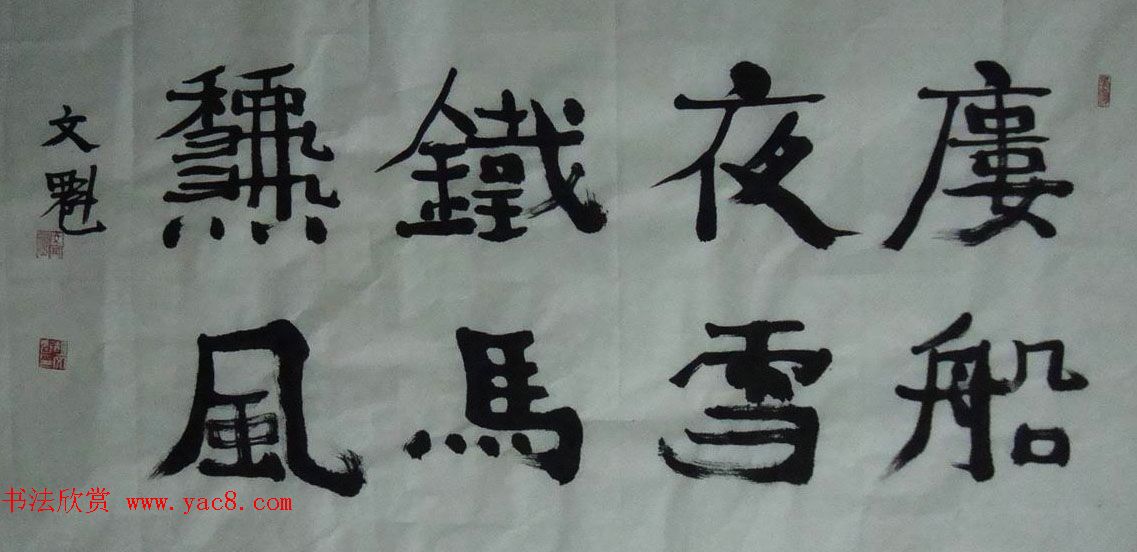 廔船
夜雪
鐵馬
風
文魁
书法欣赏 www.yac8.com